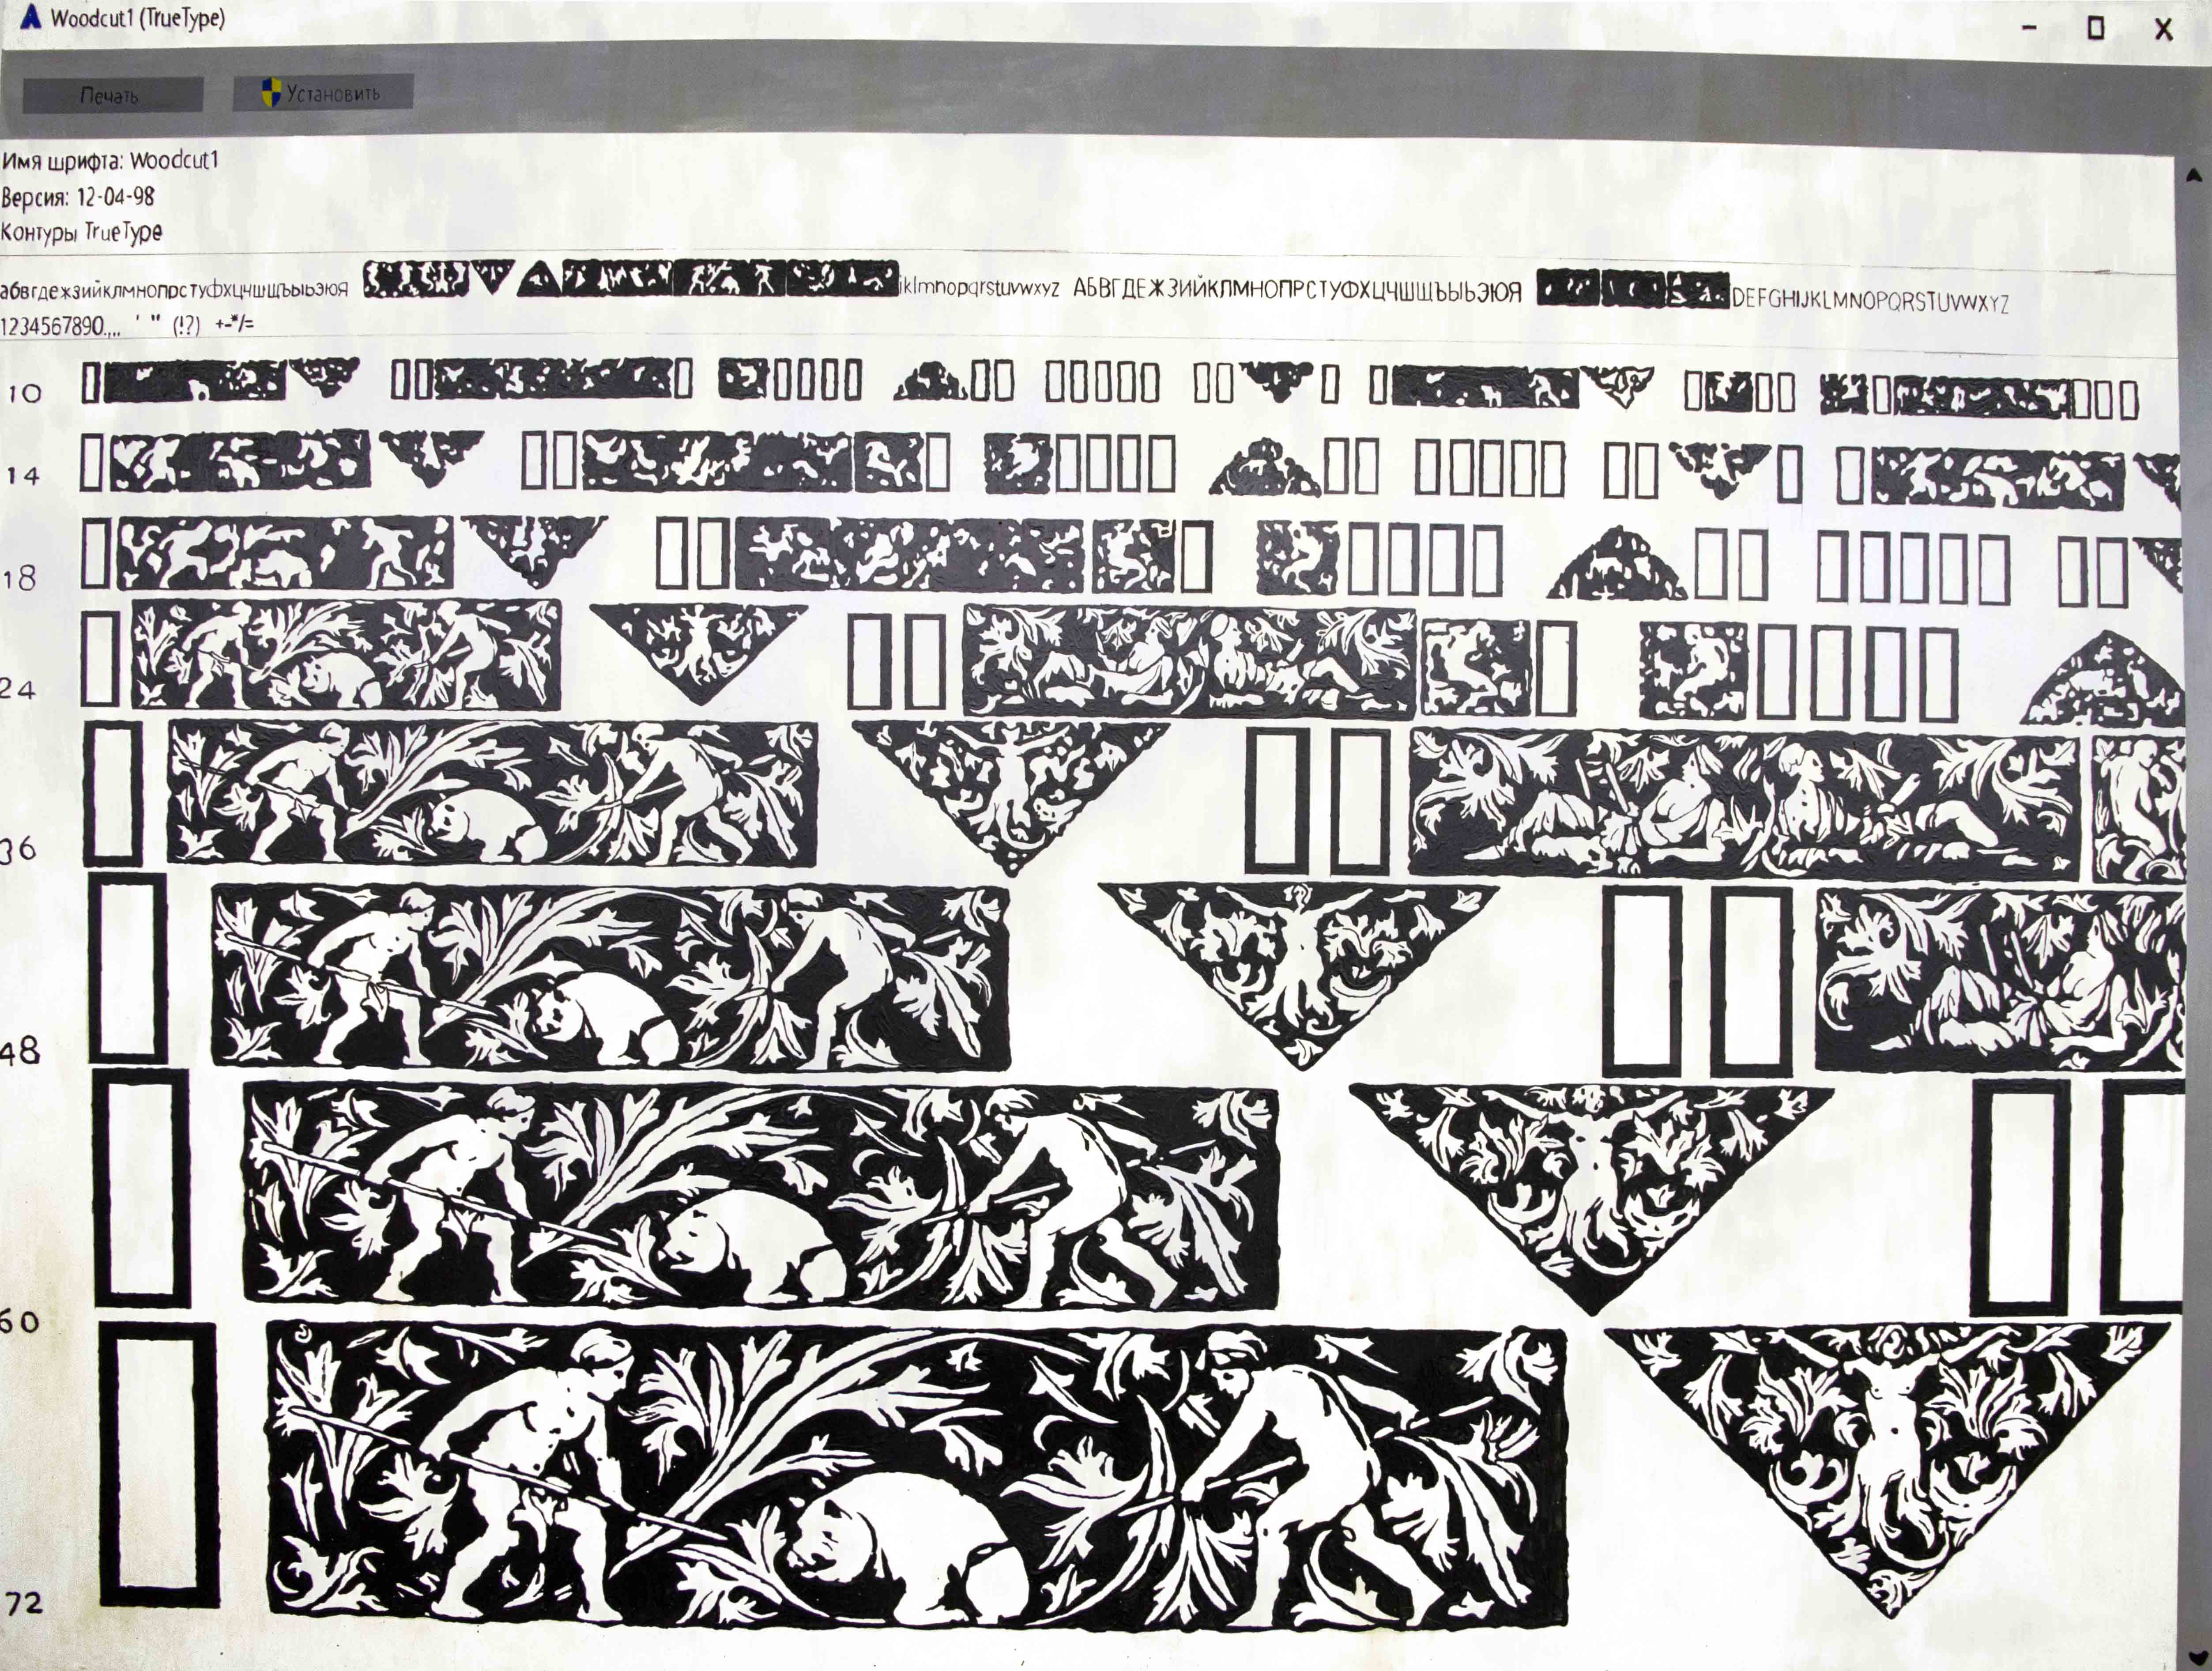 Woodcut1 (TrueType)
Печать
Установить
Имя шрифта: Woodcut1
Версия: 12-04-98
Контуры TrueType
абвгдежзийклмнопрстуфхцчшщъыьэюя jklmnopqrstuvwxyz АБВГДЕЖЗИЙКЛМНОПРСТУФХЦЧШЩЪЫЬЭЮЯ DEFGHIJKLMNOPQRSTUVWXYZ
1234567890.,, ' " (!?) +-*/=
10
14
18
24
36
48
60
72